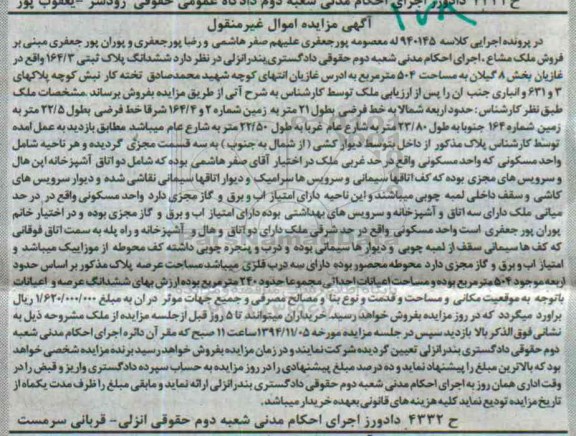 ح ۴۳۳۱ دادورز اجرای احکام مدنی شعبه دوم دادگاه عمومی حقوقی رودسر - یعقوب پور
۲۷۸
آگهی مزایده اموال غیرمنقول
در پرونده اجرایی کلاسه ۹۴۰۱۴۵ له معصومه پورجعفری علیهم سفر هاشمی و رضا پورجعفری و پوران پور جعفری مبنی بر
فروش ملک مشاع، اجرای احکام مدنی شعبه دوم حقوقی دادگستری بندرانزلی در نظر دارد ششدانگ پلاک ثبتی ۱۶۴/۳ واقع در
غازیان بخش ۸ گیلان به مساحت ۵۰۴ مترمربع به ادرس غازیان انتهای کوچه شهید محمدصادق تخته کار نبش کوچه پلاکهای
۳ و ۶۳۱ و انباری جنب ان را پس از ارزیابی ملک توسط کارشناس به شرح آتی از طریق مزایده بفروش برساند. مشخصات ملک
طبق نظر کارشناس: حدود اربعه شمالا به خط فرضی بطول ۲۱ متر به زمین شماره ۲ و ۱۶۴/۴ شرقا خط فرضی بطول ۲۲/۵ متر به
زمین شماره ۱۶۴ جنوبا به طول ۲۳/۸۰ متر به شارع عام غربا به طول ۲۲/۵۰ متر به شارع عام میباشد مطابق بازدید به عمل امده
توسط کارشناس پلاک مذکور از داخل بتوسط دیوار کشی (از شمال به جنوب) به سه قسمت مجزی گردیده و هر ناحیه شامل
واحد مسکونی که واحد مسکونی واقع در حد غربی ملک در اختیار آقای صفر هاشمی بوده که شامل دو اتاق آشپزخانه این هال
و سرویس های مجزی بوده که کف اتاقها سیمانی و سرویس ها سرامیک و دیوار اتاقها سیمانی نقاشی شده و دیوار سرویس های
کاشی و سقف داخلی لمبه چوبی میباشند و این ناحیه دارای امتیاز اب و برق و گاز مجزی دارد واحد مسکونی واقع در در حد
میانی ملک دارای سه اتاق و آشپزخانه و سرویس های بهداشتی بوده دارای امتیاز اب و برق و گاز مجزی بوده و در اختیار خانم
پوران پور جعفری است واحد مسکونی واقع در حد شرقی ملک دارای دو اتاق و هال و آشپزخانه و راه پله به سمت اتاق فوقانی
که کف ها سیمانی سقف از لمبه چوبی و دیوار ها سیمانی بوده و درب و پنجره چوبی داشته کف محوطه از موزاییک میباشد و
امتیاز اب و برق و گاز مجزی دارد محوطه محصور بوده دارای سه درب فلزی میباشد. مساحت عرصه پلاک مذکور بر اساس حدود
اربعه موجود ۵۰۴ متر مربع بوده و مساحت اعیانات احداثی مجموعا حدود ۲۴۰ متر مربع بوده ارزش بهای ششدانگ عرصه و اعیانات
باتوجه به موقعیت مکانی و مساحت و قدمت و نوع بنا و مصالح مصرفی و جمیع جهات موثر در ان به مبلغ ۱/۶۲۰/۰۰۰/۰۰۰ ریال
براورد میگردد که در روز مزایده بفروش خواهد رسید. خریداران میتوانند تا ۵ روز قبل از جلسه مزایده از ملک مشروحه ذیل به
نشانی فوق الذکر بالا بازدید سپس در جلسه مزایده مورخه ۱۳۹۴/۱۱/۰۵ ساعت ۱۱ صبح که مقر آن دائره اجرای احکام مدنی شعبه
دوم حقوقی دادگستری بندرانزلی تعیین گردیده شرکت نمایند و در زمان مزایده بفروش خواهد رسید برنده مزایده شخصی خواهد
بود که بالاترین مبلغ را پیشنهاد نماید و ده درصد مبلغ پیشنهادی را در روز مزایده به حساب سپرده دادگستری واریز و قبض را در
وقت اداری همان روز به اجرای احکام مدنی شعبه دوم حقوقی دادگستری بندرانزلی ارائه نماید و مابقی مبلغ را ظرف مدت یکماه از
تاریخ مزایده تودیع نماید کلیه هزینه های قانونی بعهده خریدار میباشد.
ح ۴۳۳۲ دادورز اجرای احکام مدنی شعبه دوم حقوقی انزلی - قربانی سرمست